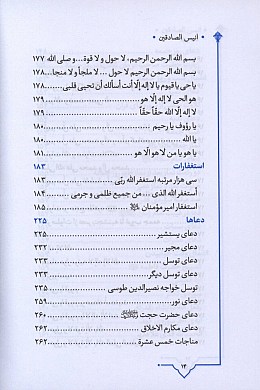 انیس الصادقین
بسم الله الرحمن الرحیم، لا حول و لا قوة...و صلی الله ۱۷۷
بسم الله الرحمن الرحیم لا حول ... لا ملجأ و لا منجا... ۱۷۸
یا حی یا قیوم یا لا إله إلّا أنت أسألك أن تحیی قلبی...... ۱۷۸
هو الحی لا إله إلّا هو ........ ۱۷۹
لا إله إلّا الله حقّاً حقّاً ........ ۱۷۹
یا رؤوف یا رحیم ........ ۱۸۰
یا الله ........ ۱۸۰
یا هو یا من لا هو الّا هو ........ ۱۸۱
استغفارات ........ ۱۸۳
سی هزار مرتبه استغفر الله ربّی ........ ۱۸۳
أستغفر الله الذی ... من جمیع ظلمی و جرمی ........ ۱۸۴
استغفار امیر مؤمنان ........ ۱۸۵
دعاها ........ ۲۲۵
دعای یستشیر ........ ۲۲۵
دعای مجیر ........ ۲۳۲
دعای توسل ........ ۲۳۳
دعای توسل دیگر ........ ۲۳۳
توسل خواجه نصیرالدین طوسی ........ ۲۳۵
دعای نور ........ ۲۵۹
دعای حضرت حجت ........ ۲۶۰
دعای مکارم الاخلاق ........ ۲۶۲
مناجات خمس عشرة ........ ۲۶۲
۱۴